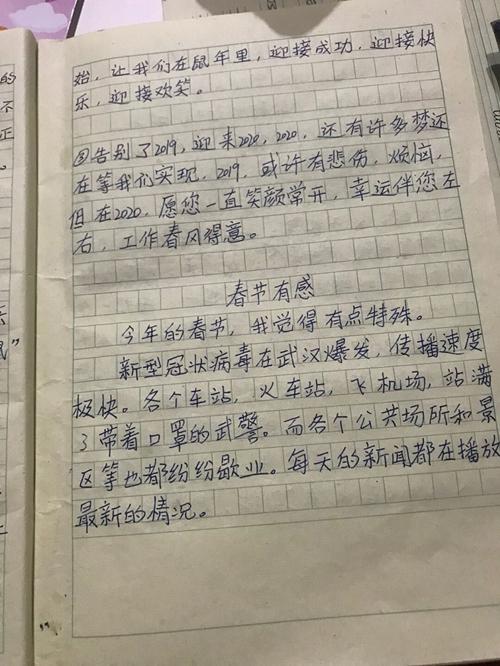 始，让我们在鼠年里，迎接成功，迎接快
乐，迎接欢笑。
③告别了2019，迎来2020，2020，还有许多梦还
在等我们实现，2019，或许有悲伤，烦恼，
但在2020，愿您一直笑颜常开，幸运伴您左
右，工作春风得意。
春节有感
今年的春节，我觉得有点特殊。
新型冠状病毒在武汉爆发，传播速度
极快。各个车站，火车站，飞机场，站满
了带着口罩的武警。而各个公共场所和景
区等也都纷纷歇业。每天的新闻都在播放
最新的情况。